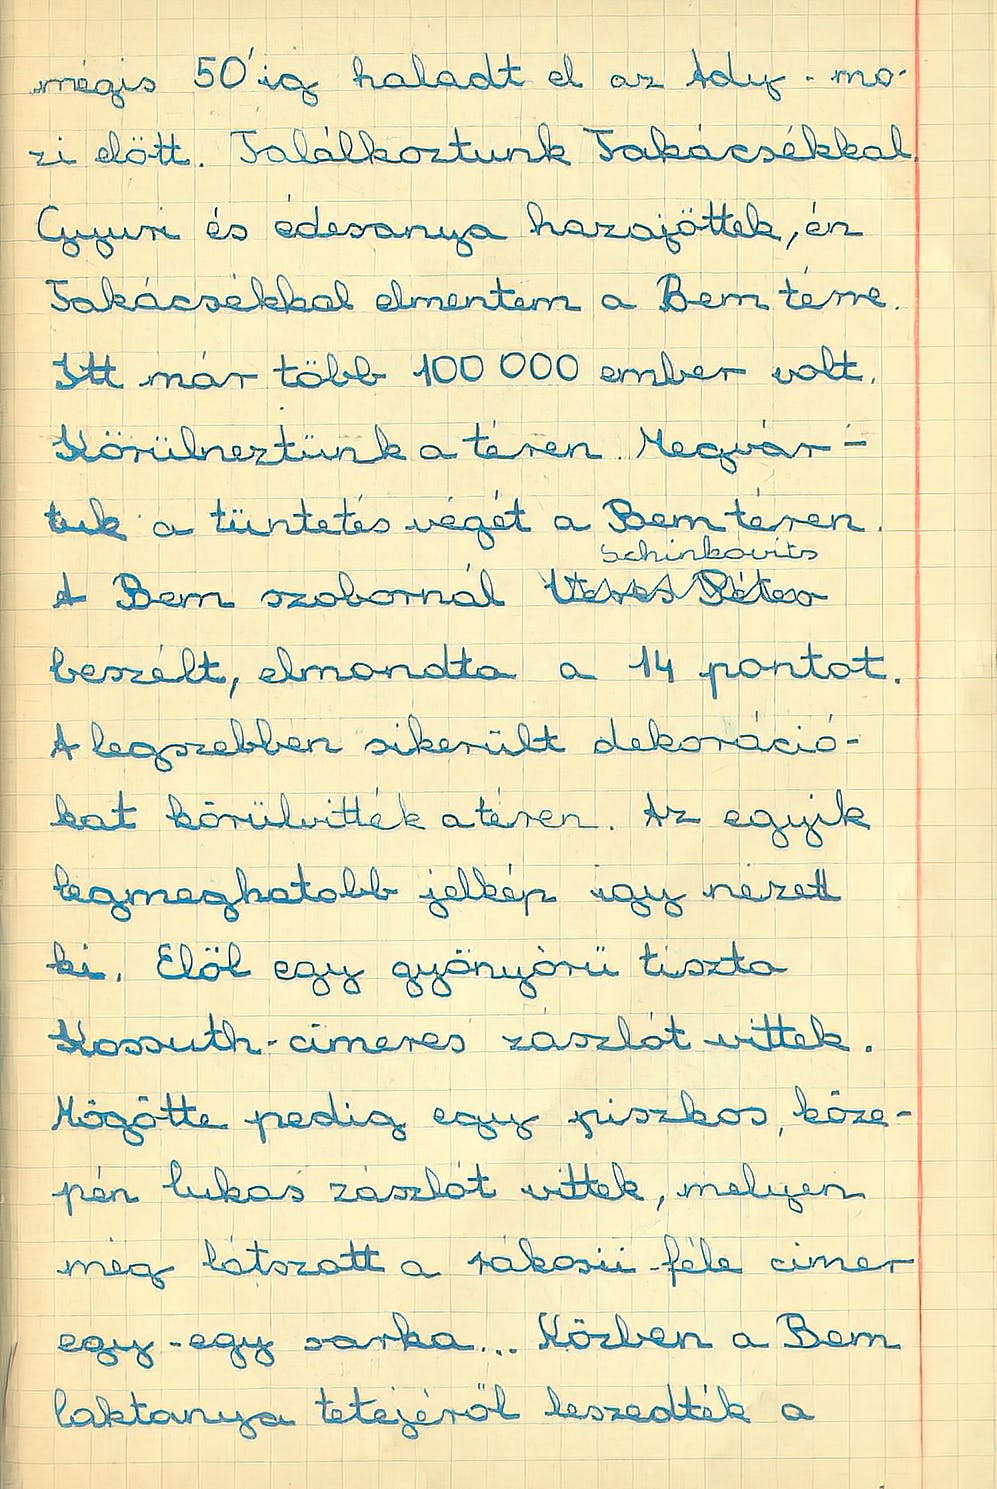 mégis 50'ig haladt el az Ady-mo-
zi előtt. Találkoztunk Takácsékkal.
Gyuri és édesanya hazajöttek, én
Takácsékkal elmentem a Bem térre.
Itt már több 100 000 ember volt.
Körülnéztünk a téren. Megvár-
tuk a tüntetés végét a Bem téren.
Schinkovits
A Bem szobornál Veres Péter
beszélt, elmondta a 14 pontot.
A legszebben sikerült dekoráció-
kat körülvitték a téren. Az egyik
legmeghatobb jelkép igy nézett
ki. Elöl egy gyönyörü tiszta
Kossuth-cimeres zászlót vittek.
Mögötte pedig egy piszkos, köze-
pén lukas zászlót vittek, melyen
még látszott a rákosii-féle cimer
egy-egy sarka... Közben a Bem
laktanya tetejéről leszedték a